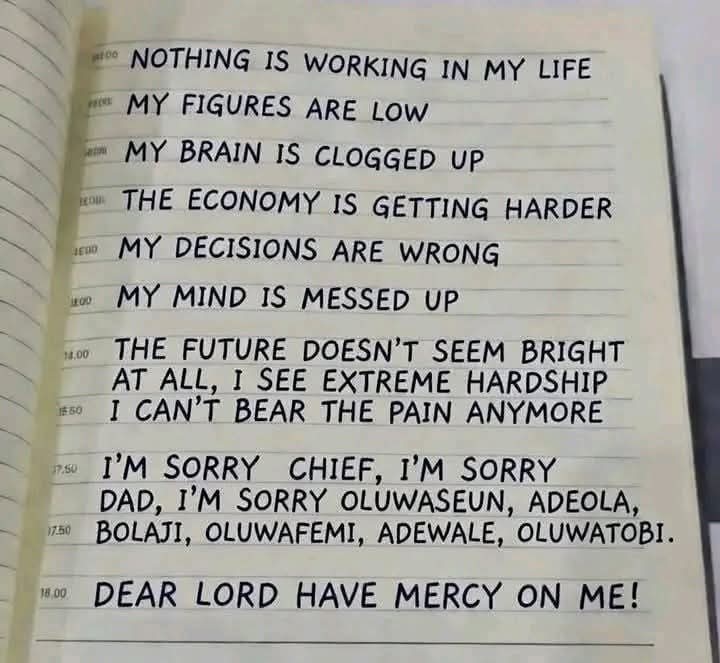 NOTHING IS WORKING IN MY LIFE
MY FIGURES ARE LOW
MY BRAIN IS CLOGGED UP
THE ECONOMY IS GETTING HARDER
MY DECISIONS ARE WRONG
MY MIND IS MESSED UP
14.00 THE FUTURE DOESN'T SEEM BRIGHT
AT ALL, I SEE EXTREME HARDSHIP
I CAN'T BEAR THE PAIN ANYMORE
17.50 I'M SORRY CHIEF, I'M SORRY
DAD, I'M SORRY OLUWASEUN, ADEOLA,
17.50 BOLAJI, OLUWAFEMI, ADEWALE, OLUWATOBI.
18.00 DEAR LORD HAVE MERCY ON ME!